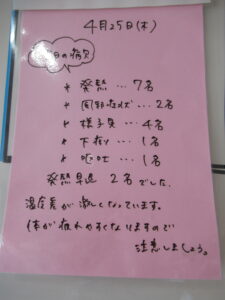 4月25日(木)
今日の病欠
* 発熱 … 7名
* 胃腸症状 … 2名
* 様子見 … 4名
* 下痢 … 1名
* 嘔吐 … 1名
発熱早退 2名でした。
温度差が激しくなっています。
体が疲れやすくなりますので
注意しましょう。